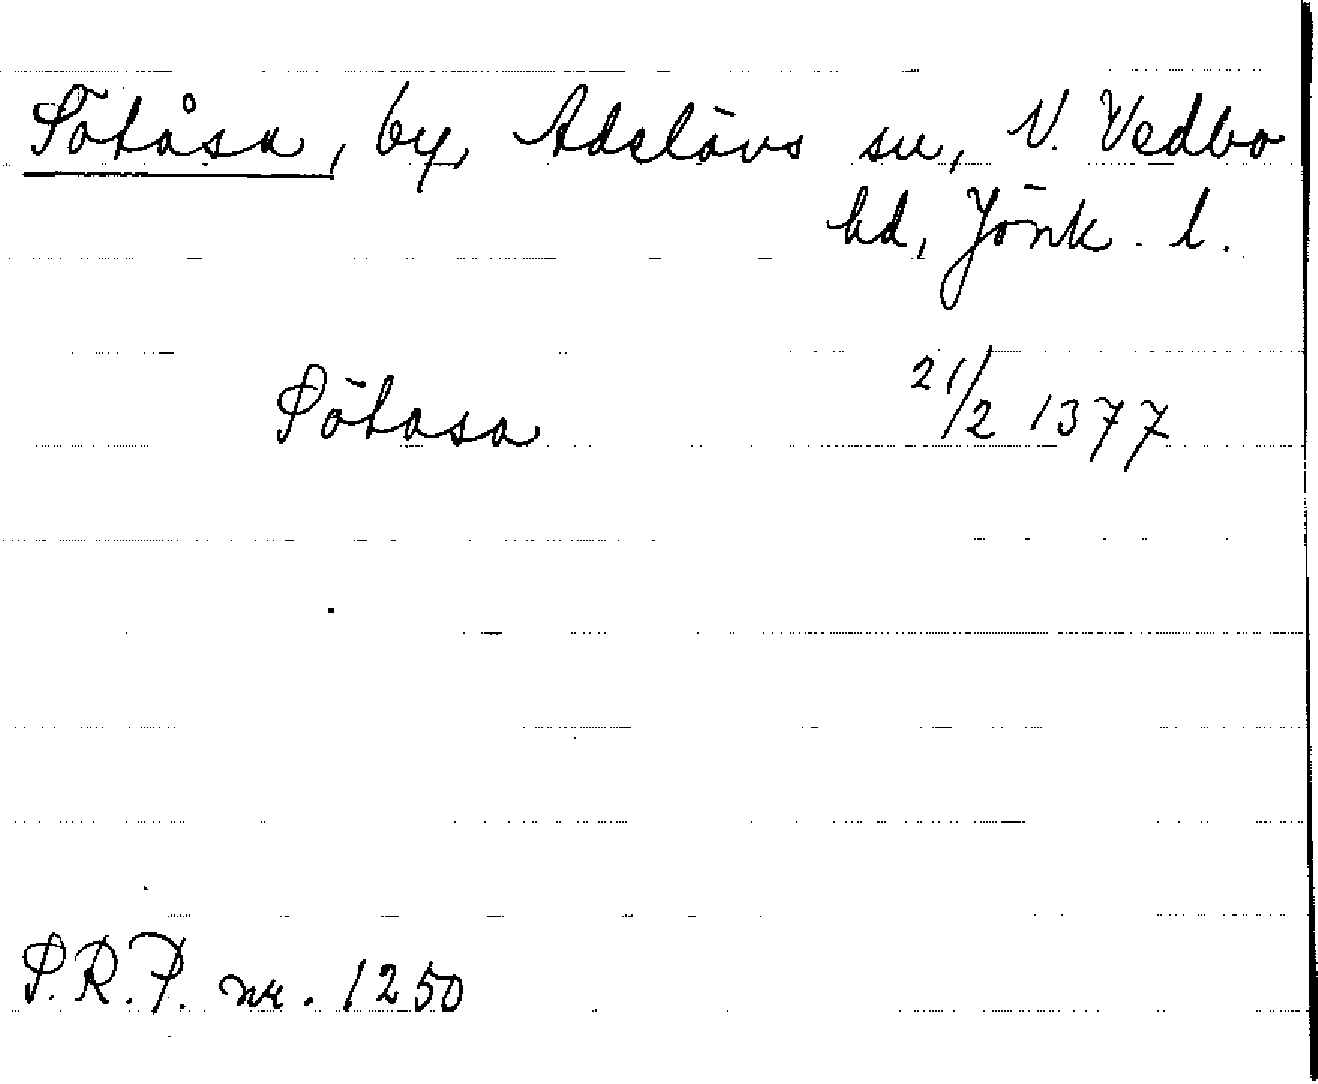 Sötåsa, by, Adelövs sn, N. Vedbo
hd, Jönk. l.
Sötasa 21/2 1377
S.R.P. nr. 1250